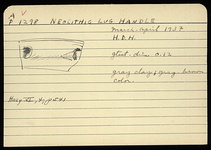 A V
P 1298 NEOLITHIC LUG HANDLE
March-April 1937
H.D.H.
gtest. dim 0.12
gray clay; gray-brown
color.